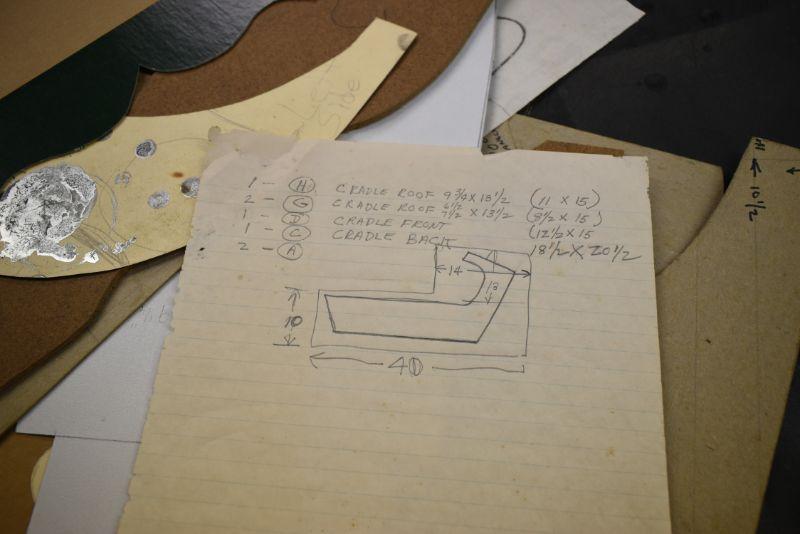 Left
Side
1 - (H) CRADLE ROOF 9 3/4 X 13 1/2 (11 X 15)
2 - (G) CRADLE ROOF 6 1/2 7 1/2 X 13 1/2 (8 1/2 X 15)
1 - (D) CRADLE FRONT (12 1/2 X 15
1 - (C) CRADLE BACK 18 1/2 X 20 1/2
2 - (A)
14
13
10
40
10 1/2